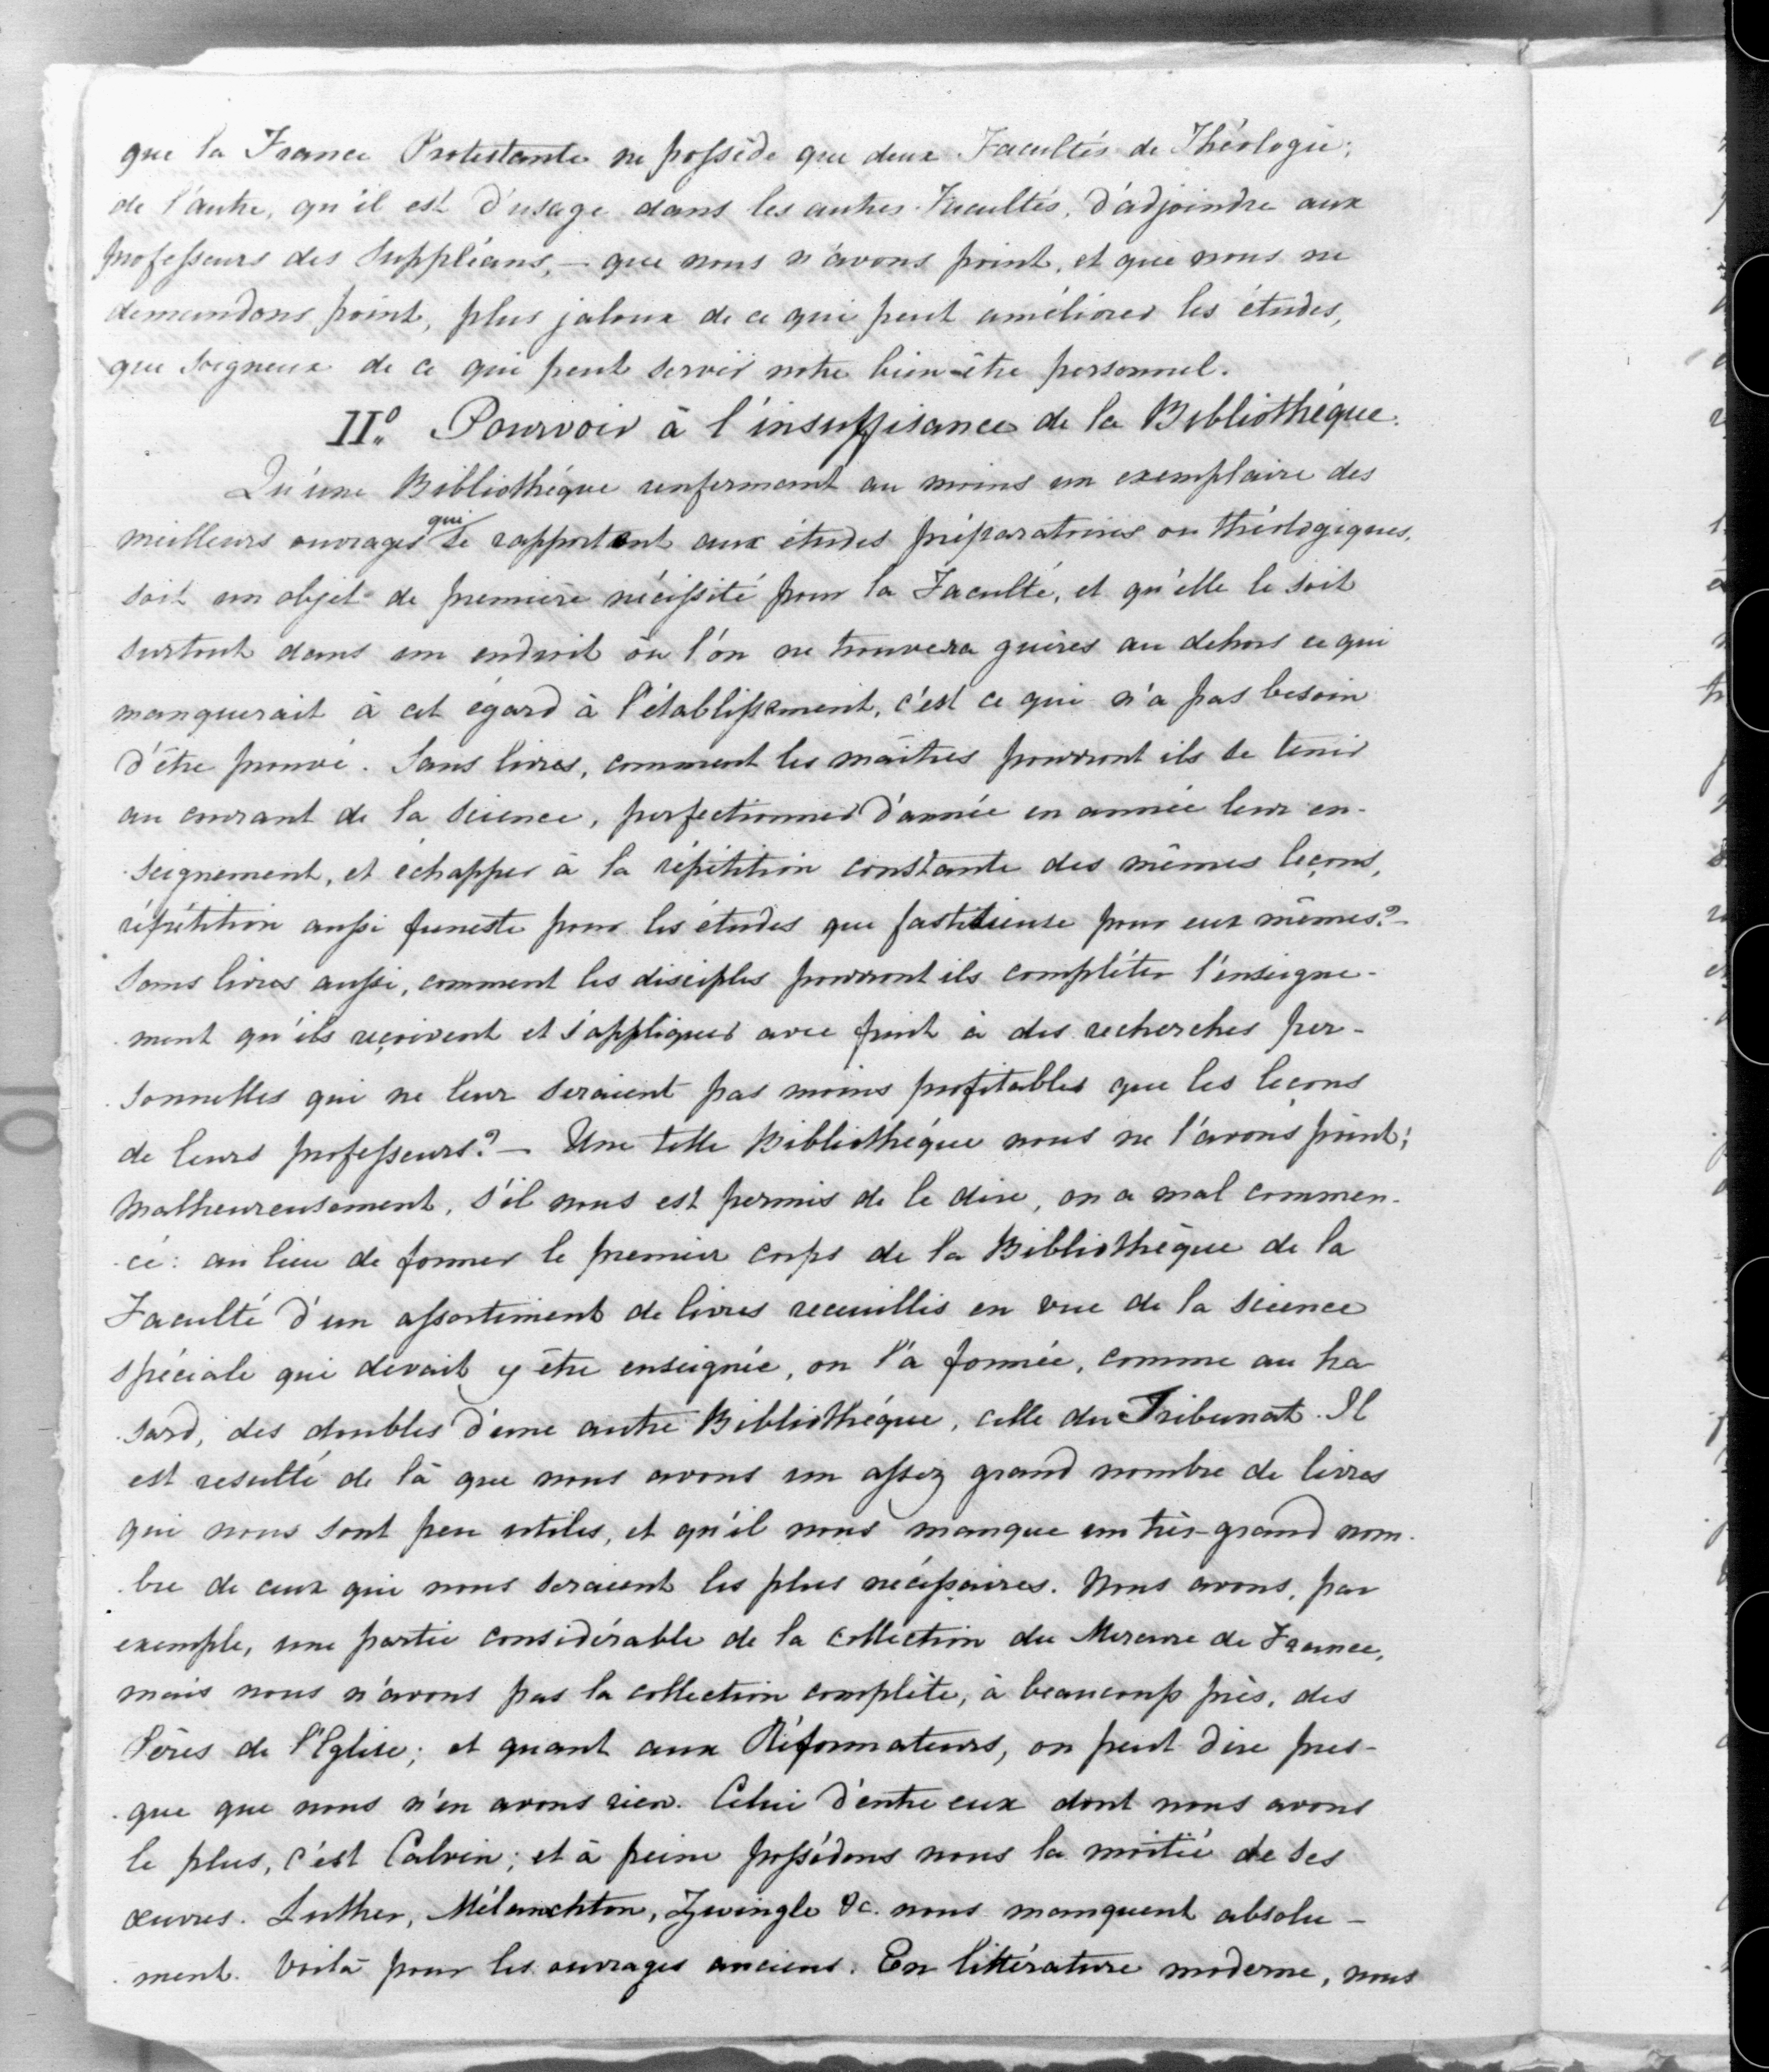 que la France Protestante ne possède que deux Facultés de Théologie;
de l'autre, qu'il est d'usage dans les autres Facultés, d'adjoindre aux
professeurs des Suppléans, — que nous n'avons point, et que nous ne
demandons point, plus jaloux de ce qui peut améliorer les études,
que soigneux de ce qui peut servir notre bien-être personnel.
II.° Pourvoir à l'insuffisance de la Bibliothéque.
Qu'une Bibliothéque renfermant au moins un exemplaire des
meilleurs ouvrages qui se rapportent aux études préparatoires ou théologiques,
soit un objet de première nécessité pour la Faculté, et qu'elle le soit
surtout dans un endroit où l'on ne trouvera guères au dehors ce qui
manquerait à cet égard à l'établissement, c'est ce qui n'a pas besoin
d'être prouvé. Sans livres, comment les maîtres pourront ils se tenir
au courant de la science, perfectionner d'année en année leur en-
seignement, et échapper à la répétition constante des mêmes leçons,
répétition aussi funeste pour les études que fastidieuse pour eux mêmes? —
Sans livres aussi, comment les disciples pourront ils compléter l'enseigne-
ment qu'ils reçoivent et s'appliquer avec fruit à des recherches per-
sonnelles qui ne leur seraient pas moins profitables que les leçons
de leurs professeurs? — Une telle Bibliothéque nous ne l'avons point;
Malheureusement, s'il nous est permis de le dire, on a mal commen-
cé: au lieu de former le premier corps de la Bibliothèque de la
Faculté d'un assortiment de livres recueillis en vue de la science
spéciale qui devait y être enseignée, on l'a formée, comme au ha-
sard, des doubles d'une autre Bibliothéque, celle du Tribunat. Il
est resulté de là que nous avons un assez grand nombre de livres
qui nous sont peu utiles, et qu'il nous manque un très-grand nom-
bre de ceux qui nous seraient les plus nécessaires. Nous avons, par
exemple, une partie considérable de la collection du Mercure de France,
mais nous n'avons pas la collection complète, à beaucoup près, des
Pères de l'Eglise; et quant aux Réformateurs, on peut dire pres-
que que nous n'en avons rien. Celui d'entre eux dont nous avons
le plus, c'est Calvin; et à peine possédons nous la moitié de ses
œuvres. Luther, Mélanchton, Zwingle &c. nous manquent absolu-
ment. Voilà pour les ouvrages anciens. En littérature moderne, nous